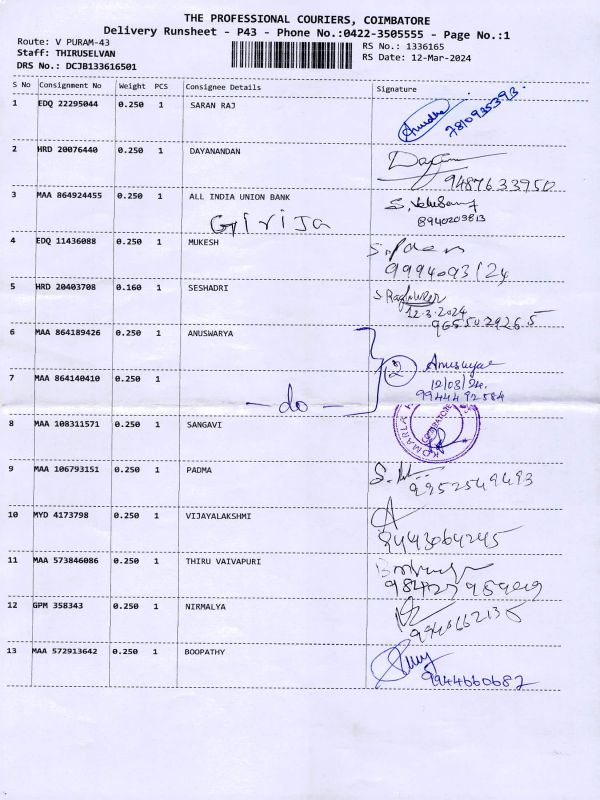 THE PROFESSIONAL COURIERS, COIMBATORE
Delivery Runsheet - P43 - Phone No.:0422-3505555 - Page No.:1
Route: V PURAM-43
Staff: THIRUSELVAN
DRS No.: DCJB133616501
RS No.: 1336165
RS Date: 12-Mar-2024
S No Consignment No Weight PCS Consignee Details Signature
1 EDQ 22295044 0.250 1 SARAN RAJ
7810935393
2 HRD 20076440 0.250 1 DAYANANDAN
9487633950
3 MAA 864924455 0.250 1 ALL INDIA UNION BANK
Girija
8940203813
4 EDQ 11436088 0.250 1 MUKESH
5 HRD 20403708 0.160 1 SESHADRI
12.3.2024
6 MAA 864189426 0.250 1 ANUSWARYA
12/03/24.
9944492584
7 MAA 864140410 0.250 1
- do -
8 MAA 108311571 0.250 1 SANGAVI
COIMBATORE
9 MAA 106793151 0.250 1 PADMA
9952549493
10 MYD 4173798 0.250 1 VIJAYALAKSHMI
9443064245
11 MAA 573846086 0.250 1 THIRU VAIVAPURI
12 GPM 358343 0.250 1 NIRMALYA
13 MAA 572913642 0.250 1 BOOPATHY
9944660687